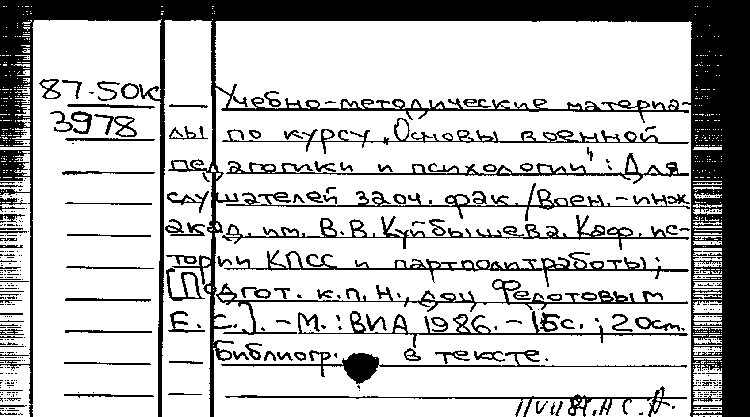 87-50к
3978
Учебно-методические материа-
лы по курсу „Основы военной
педагогики и психологии": Для
слушателей заоч. фак. /Воен.-инж.
акад. им. В.В. Куйбышева. Каф. ис-
тории КПСС и партполитработы;
[Подгот. к.п.н., доц. Федотовым
Е.С.]. - М.: ВИА, 1986. - 15с.; 20см.
Библиогр. в тексте.